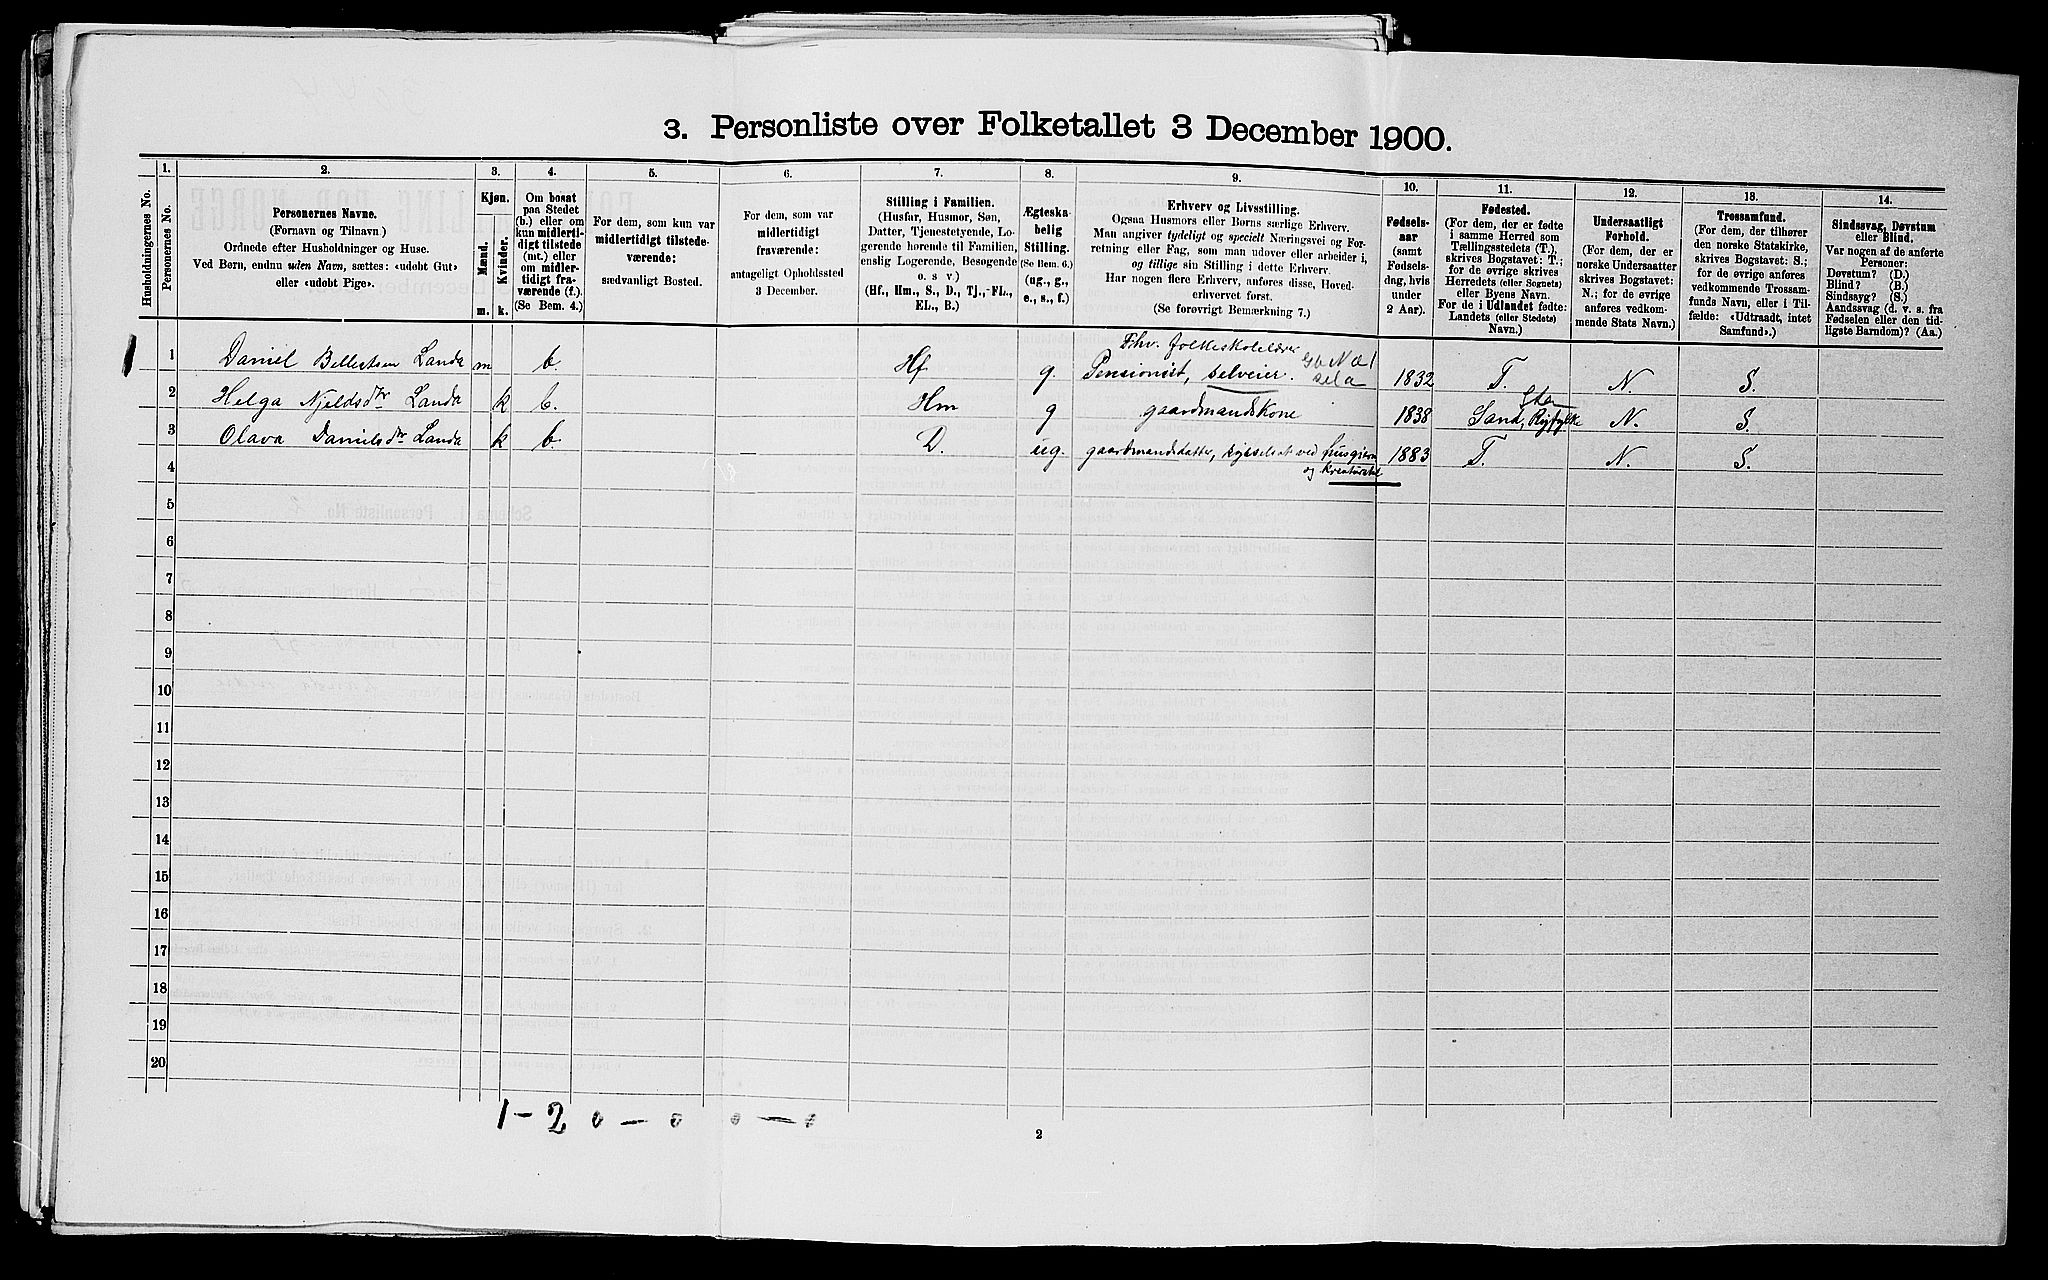 3. Personliste over Folketallet 3 December 1900.
Husholdningernes No.
1.
Personernes No.
2.
Personernes Navne.
(Fornavn og Tilnavn.)
Ordnede efter Husholdninger og Huse.
Ved Børn, endnu uden Navn, sættes: «udøbt Gut»
eller «udøbt Pige».
3.
Kjøn.
Mænd.
Kvinder.
m. k.
4.
Om bosat
paa Stedet
(b.) eller om
kun midlerti-
digt tilstede
(mt.) eller
om midler-
tidigt fra-
værende (f.)
(Se Bem. 4.)
5.
For dem, som kun var
midlertidigt tilstede-
værende:
sædvanligt Bosted.
6.
For dem, som var
midlertidigt
fraværende:
antageligt Opholdssted
3 December.
7.
Stilling i Familien.
(Husfar, Husmor, Søn,
Datter, Tjenestetyende, Lo-
gerende hørende til Familien,
enslig Logerende, Besøgende
o. s v.)
(Hf., Hm., S., D., Tj., FL.,
EL., B.)
8.
Ægteska-
belig
Stilling.
(Se Bem. 6.)
(ug., g.,
e., s., f.)
9.
Erhverv og Livsstilling.
Ogsaa Husmors eller Børns særlige Erhverv.
Man angiver tydeligt og specielt Næringsvei og For-
retning eller Fag, som man udøver eller arbeider i,
og tillige sin Stilling i dette Erhverv.
Har nogen flere Erhverv, anføres disse, Hoved-
erhvervet først.
(Se forøvrigt Bemærkning 7.)
10.
Fødsels-
aar
(samt
Fødsels-
dag, hvis
under
2 Aar).
11.
Fødested.
(For dem, der er fødte
i samme Herred som
Tællingsstedets (T.),
skrives Bogstavet: T.;
for de øvrige skrives
Herredets (eller Sognets)
eller Byens Navn.
For de i Udlandet fødte:
Landets (eller Stedets)
Navn.)
12.
Undersaatligt
Forhold.
(For dem, der er
norske Undersaatter
skrives Bogstavet:
N.; for de øvrige
anføres vedkom-
mende Stats Navn.)
13.
Trossamfund.
(For dem, der tilhører
den norske Statskirke,
skrives Bogstavet: S.;
for de øvrige anføres
vedkommende Trossam-
funds Navn, eller i Til-
fælde: «Udtraadt, intet
Samfund».)
14.
Sindssvag, Døvstum
eller Blind.
Var nogen af de anførte
Personer:
Døvstum? (D.)
Blind? (B.)
Sindssyg? (S.)
Aandssvag (d. v. s. fra
Fødselen eller den tid-
ligste Barndom)? (Aa.)
Fhv. folkeskolelærer
1 Daniel Landa m b. Hf g. Pensionist, selveier. 1832 T. N. S.
2 Helga Njeldsdtr Landa k b. Hm g gaardmandskone 1838 Sand, Ryfylke N. S.
3 Olava Danielsdtr Landa k b. D. ug. gaardmandsdatter, sysselsat ved husgjern 1883 T. N. S.
og kreaturstel
4
5
6
7
8
9
10
11
12
13
14
15
16
17
18
19
20
1 - 2 0 - 0 0 - 0
2